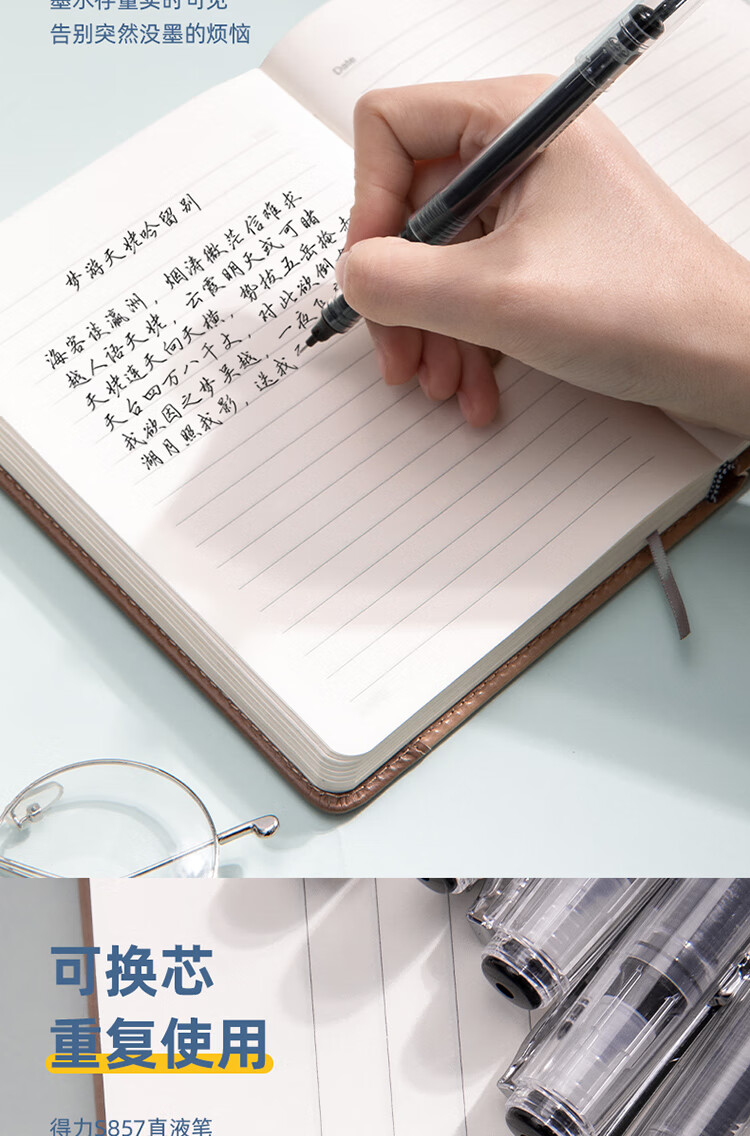 墨水存量实时可见
告别突然没墨的烦恼
Date
梦游天姥吟留别
海客谈瀛洲，烟涛微茫信难求
越人语天姥，云霞明灭或可睹
天姥连天向天横，势拔五岳掩
天台四万八千丈，对此欲倒
我欲因之梦吴越，一夜飞
湖月照我影，送我
可换芯
重复使用
得力S857直液笔